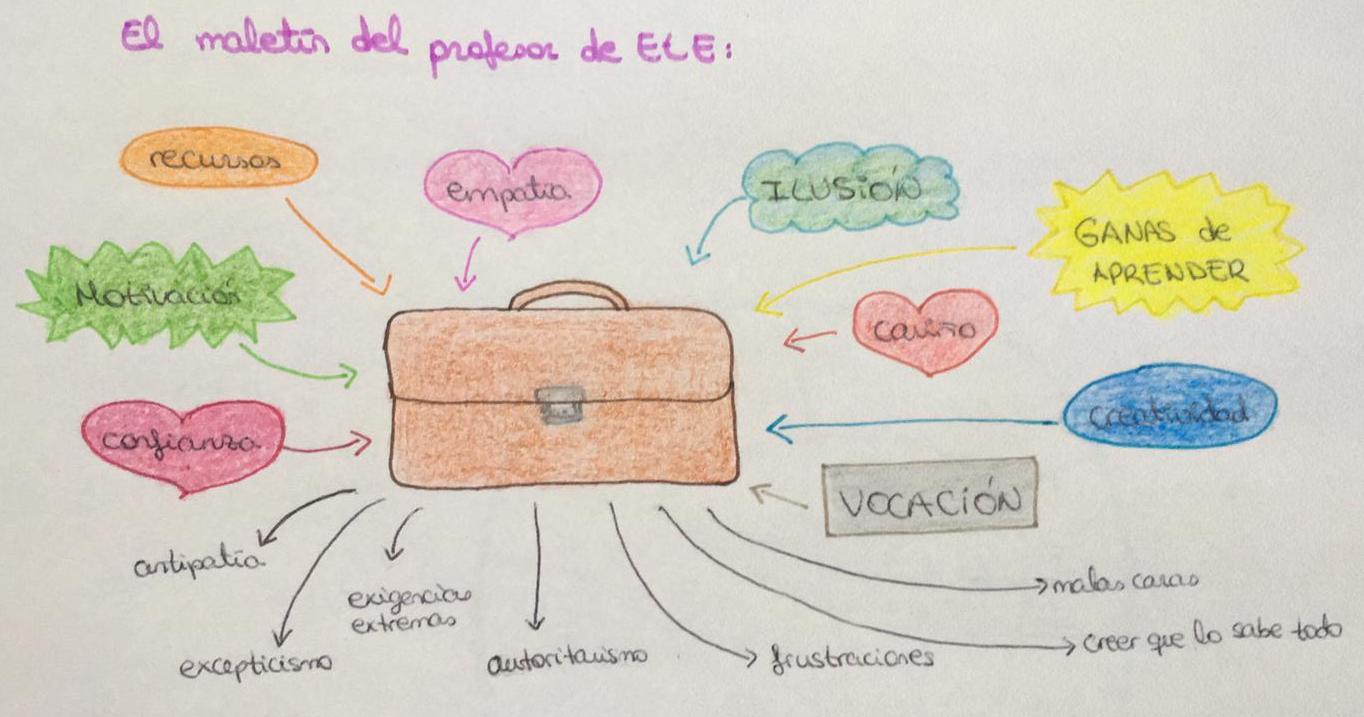 El maletín del profesor de ELE:
recursos
empatía
ILUSIÓN
GANAS de
APRENDER
Motivación
cariño
confianza
creatividad
VOCACIÓN
antipatía
exigencias
extremas
malas caras
excepticismo
autoritarismo
frustraciones
creer que lo sabe todo